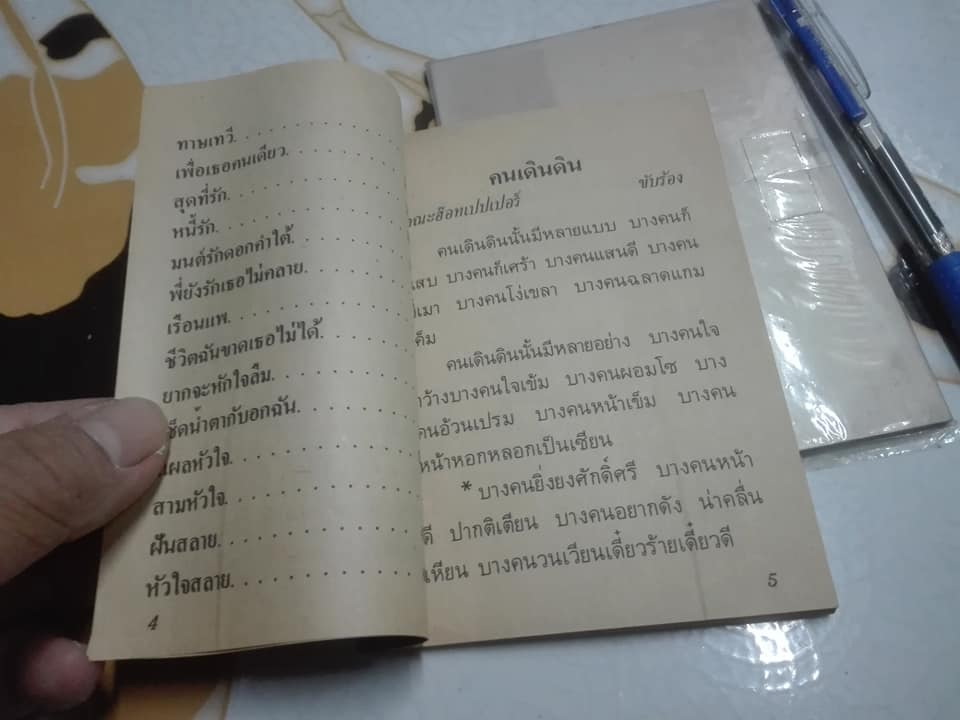 ทาษเทวี. . . . . . . . . . . .
เพื่อเธอคนเดียว. . . . . . . .
สุดที่รัก. . . . . . . . . . . .
หนี้รัก. . . . . . . . . . . . .
มนต์รักดอกคำใต้. . . . . . . .
พี่ยังรักเธอไม่คลาย. . . . . . .
เรือนแพ. . . . . . . . . . . .
ชีวิตฉันขาดเธอไม่ได้. . . . . .
ยากจะหักใจลืม. . . . . . . . .
ช็ดน้ำตากับอกฉัน. . . . . . . .
แผลหัวใจ. . . . . . . . . . . .
สามหัวใจ. . . . . . . . . . . .
ฝันสลาย. . . . . . . . . . . .
หัวใจสลาย. . . . . . . . . . .
4
คนเดินดิน
ณะฮ๊อทเปปเปอร์ ขับร้อง
คนเดินดินนั้นมีหลายแบบ บางคนก็
แสบ บางคนก็เศร้า บางคนแสนดี บางคน
เมา บางคนโง่เขลา บางคนฉลาดแกม
ค็ม
คนเดินดินนั้นมีหลายอย่าง บางคนใจ
ว้างบางคนใจเข้ม บางคนผอมโซ บาง
คนอ้วนเปรม บางคนหน้าเข็ม บางคน
หน้าหอกหลอกเป็นเซียน
* บางคนยิ่งยงศักดิ์ศรี บางคนหน้า
ดี ปากติเตียน บางคนอยากดัง น่าคลื่น
เหียน บางคนวนเวียนเดี๋ยวร้ายเดี๋ยวดี
5